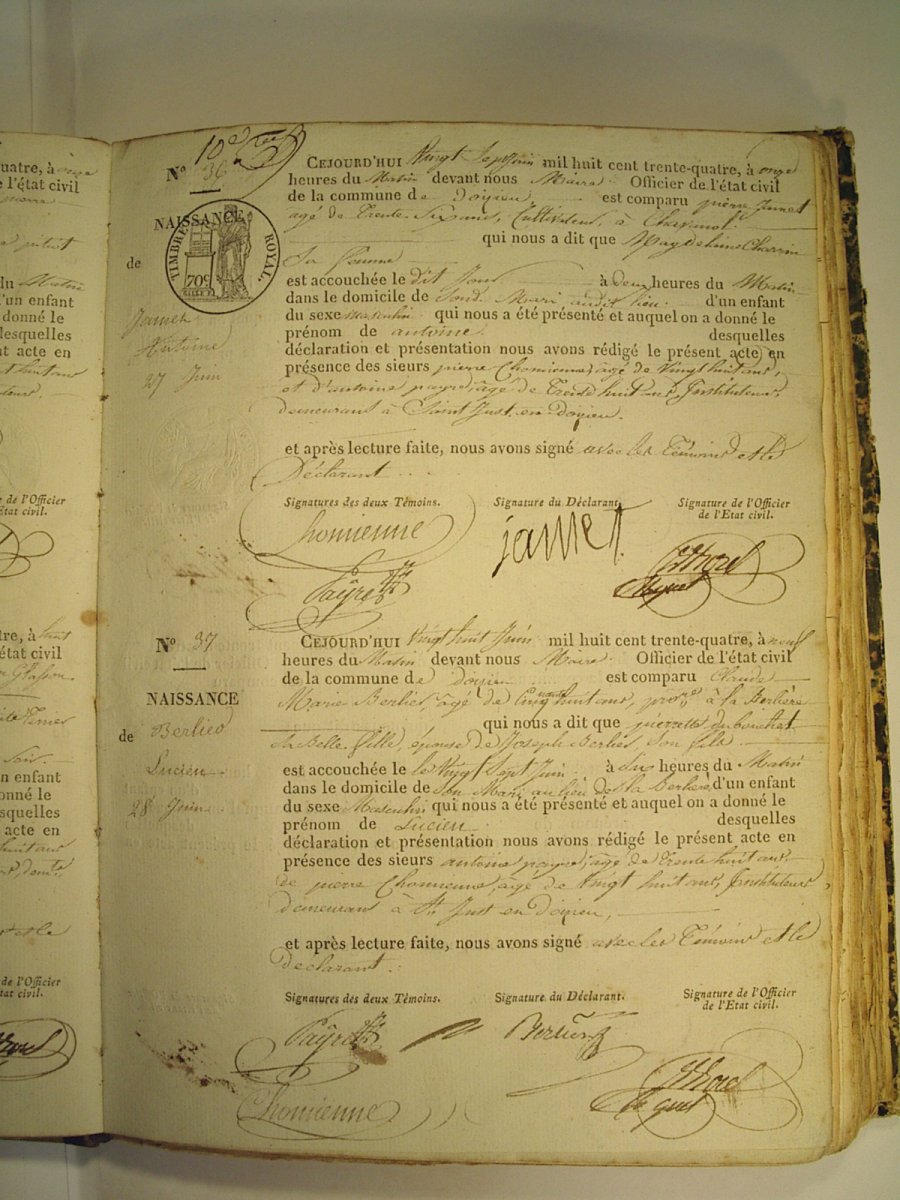 uatre, à onze
e l'état civil
pierre
du Matin
d'un enfant
donné le
desquelles
t acte en
huit ans
e de l'Officier
État civil.
tre, à huit
état civil
Soir.
n enfant
onné le
squelles
acte en
huit ans
et le
de l'Officier
tat civil.
10e
N° 36
NAISSANCE
TIMBRE ROYAL.
70c
de
Jamet
Antoine
27 Juin
CEJOURD'HUI Vingt Sept Juin mil huit cent trente-quatre, à onze
heures du Matin devant nous Maire Officier de l'état civil
de la commune de Doizieu est comparu pierre Jamet
agé de Trente Six ans, Cultivateur, à
qui nous a dit que Magdelaine
Sa femme
est accouchée le dit Jour à deux heures du Matin
dans le domicile de Sond. Mari audit lieu d'un enfant
du sexe masculin qui nous a été présenté et auquel on a donné le
prénom de antoine desquelles
déclaration et présentation nous avons rédigé le présent acte en
présence des sieurs pierre Chomienne, agé de Vingt huit ans,
et d'antoine payre, agé de Trente huit ans, Instituteurs
demeurant à Saint Just, en doizieu.
et après lecture faite, nous avons signé avec les Témoins et le
Déclarant
Signatures des deux Témoins. Signature du Déclarant. Signature de l'Officier
de l'Etat civil.
Chomienne jamet
Payre
N° 37
NAISSANCE
de Berlier
Lucien
28 Juin
CEJOURD'HUI Vingt huit Juin mil huit cent trente-quatre, à neuf
heures du Matin devant nous Maire Officier de l'état civil
de la commune de doizieu est comparu Claude
Marie Berlier, agé de Cinquante huit ans, pro.re à la Berlière
qui nous a dit que pierrette dubouchet
Sa Belle-fille, épouse de Joseph Berlier, Son fils
est accouchée le Vingt Sept Juin à dix heures du Matin
dans le domicile de Son Mari au lieu de la Berlière, d'un enfant
du sexe Masculin qui nous a été présenté et auquel on a donné le
prénom de Lucien desquelles
déclaration et présentation nous avons rédigé le présent acte en
présence des sieurs antoine payre, agé de trente huit ans
de pierre Chomienne, agé de Vingt huit ans, Instituteurs
demeurans à St. Just en doizieu,
et après lecture faite, nous avons signé avec les Témoins et le
declarant.
Signatures des deux Témoins. Signature du Déclarant. Signature de l'Officier
de l'Etat civil.
Payre Berlier
Chomienne